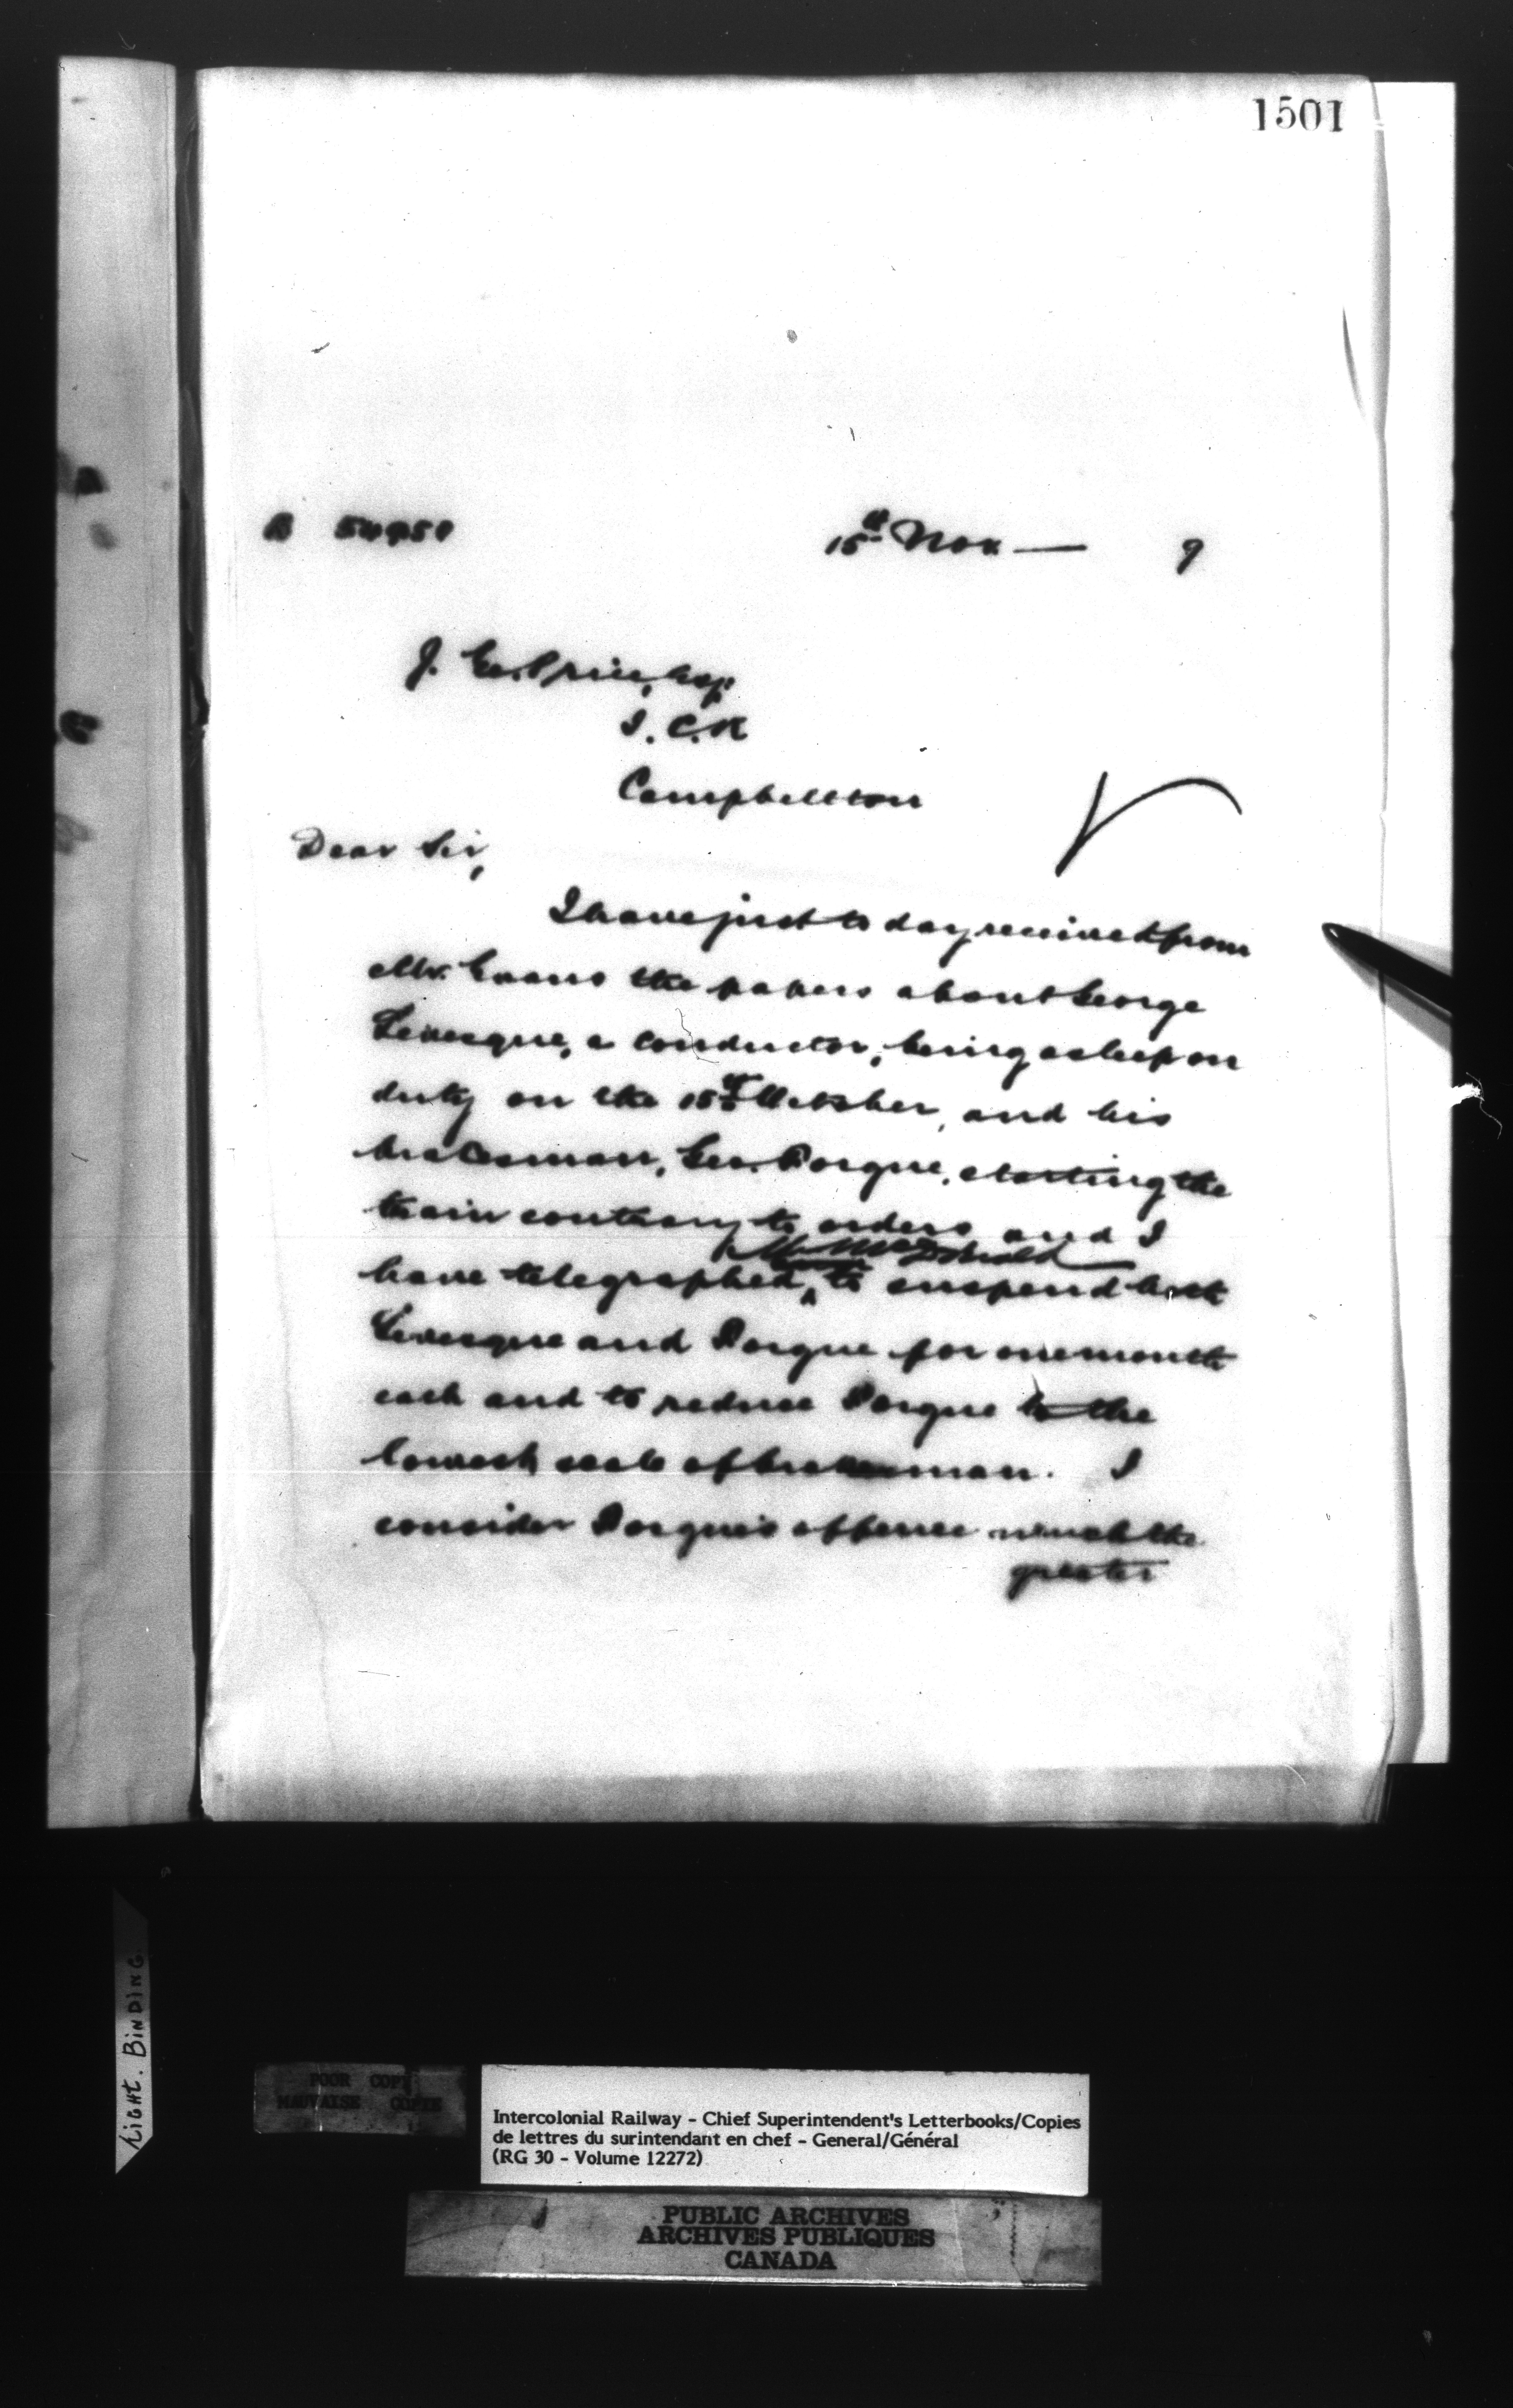 1501
15th Nov — 9
J. Geo. Price, Esq.
I. C. R
Campbellton
Dear Sir,
I have just to day received from
Mr. Evans the papers about George
Levesque, a conductor, being asleep on
duty on the 15th October, and his
brakesman, Geo. Porgue, starting the
train contrary to orders and I
Mr McDonald
have telegraphed to suspend both
Levesque and Porgue for one month
each and to reduce Porgue to the
lowest scale of brakesman. I
consider Porgue's offence much the
greater
Light. BINDING
POOR COPY
MAUVAISE COPIE
Intercolonial Railway - Chief Superintendent's Letterbooks/Copies
de lettres du surintendant en chef - General/Général
(RG 30 - Volume 12272)
PUBLIC ARCHIVES
ARCHIVES PUBLIQUES
CANADA